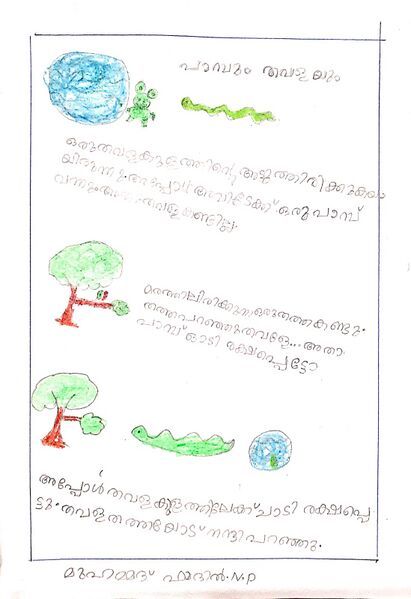 പാമ്പും തവളയും
ഒരു തവള കുളത്തിന്റെ അടുത്തിരിക്കുകയാ
യിരുന്നു. അപ്പോൾ അവിടേക്ക് ഒരു പാമ്പ്
വന്നു. തവള കണ്ടില്ല.
മരത്തിലിരിക്കുന്ന ഒരു തത്ത കണ്ടു.
തത്ത പറഞ്ഞു തവളേ... അതാ
പാമ്പ് ഓടി രക്ഷപ്പെട്ടോ
അപ്പോൾ തവള കുളത്തിലേക്ക് ചാടി രക്ഷപ്പെ
ട്ടു. തവള തത്തയോട് നന്ദി പറഞ്ഞു.
മുഹമ്മദ് ഹമദിൻ.N.P